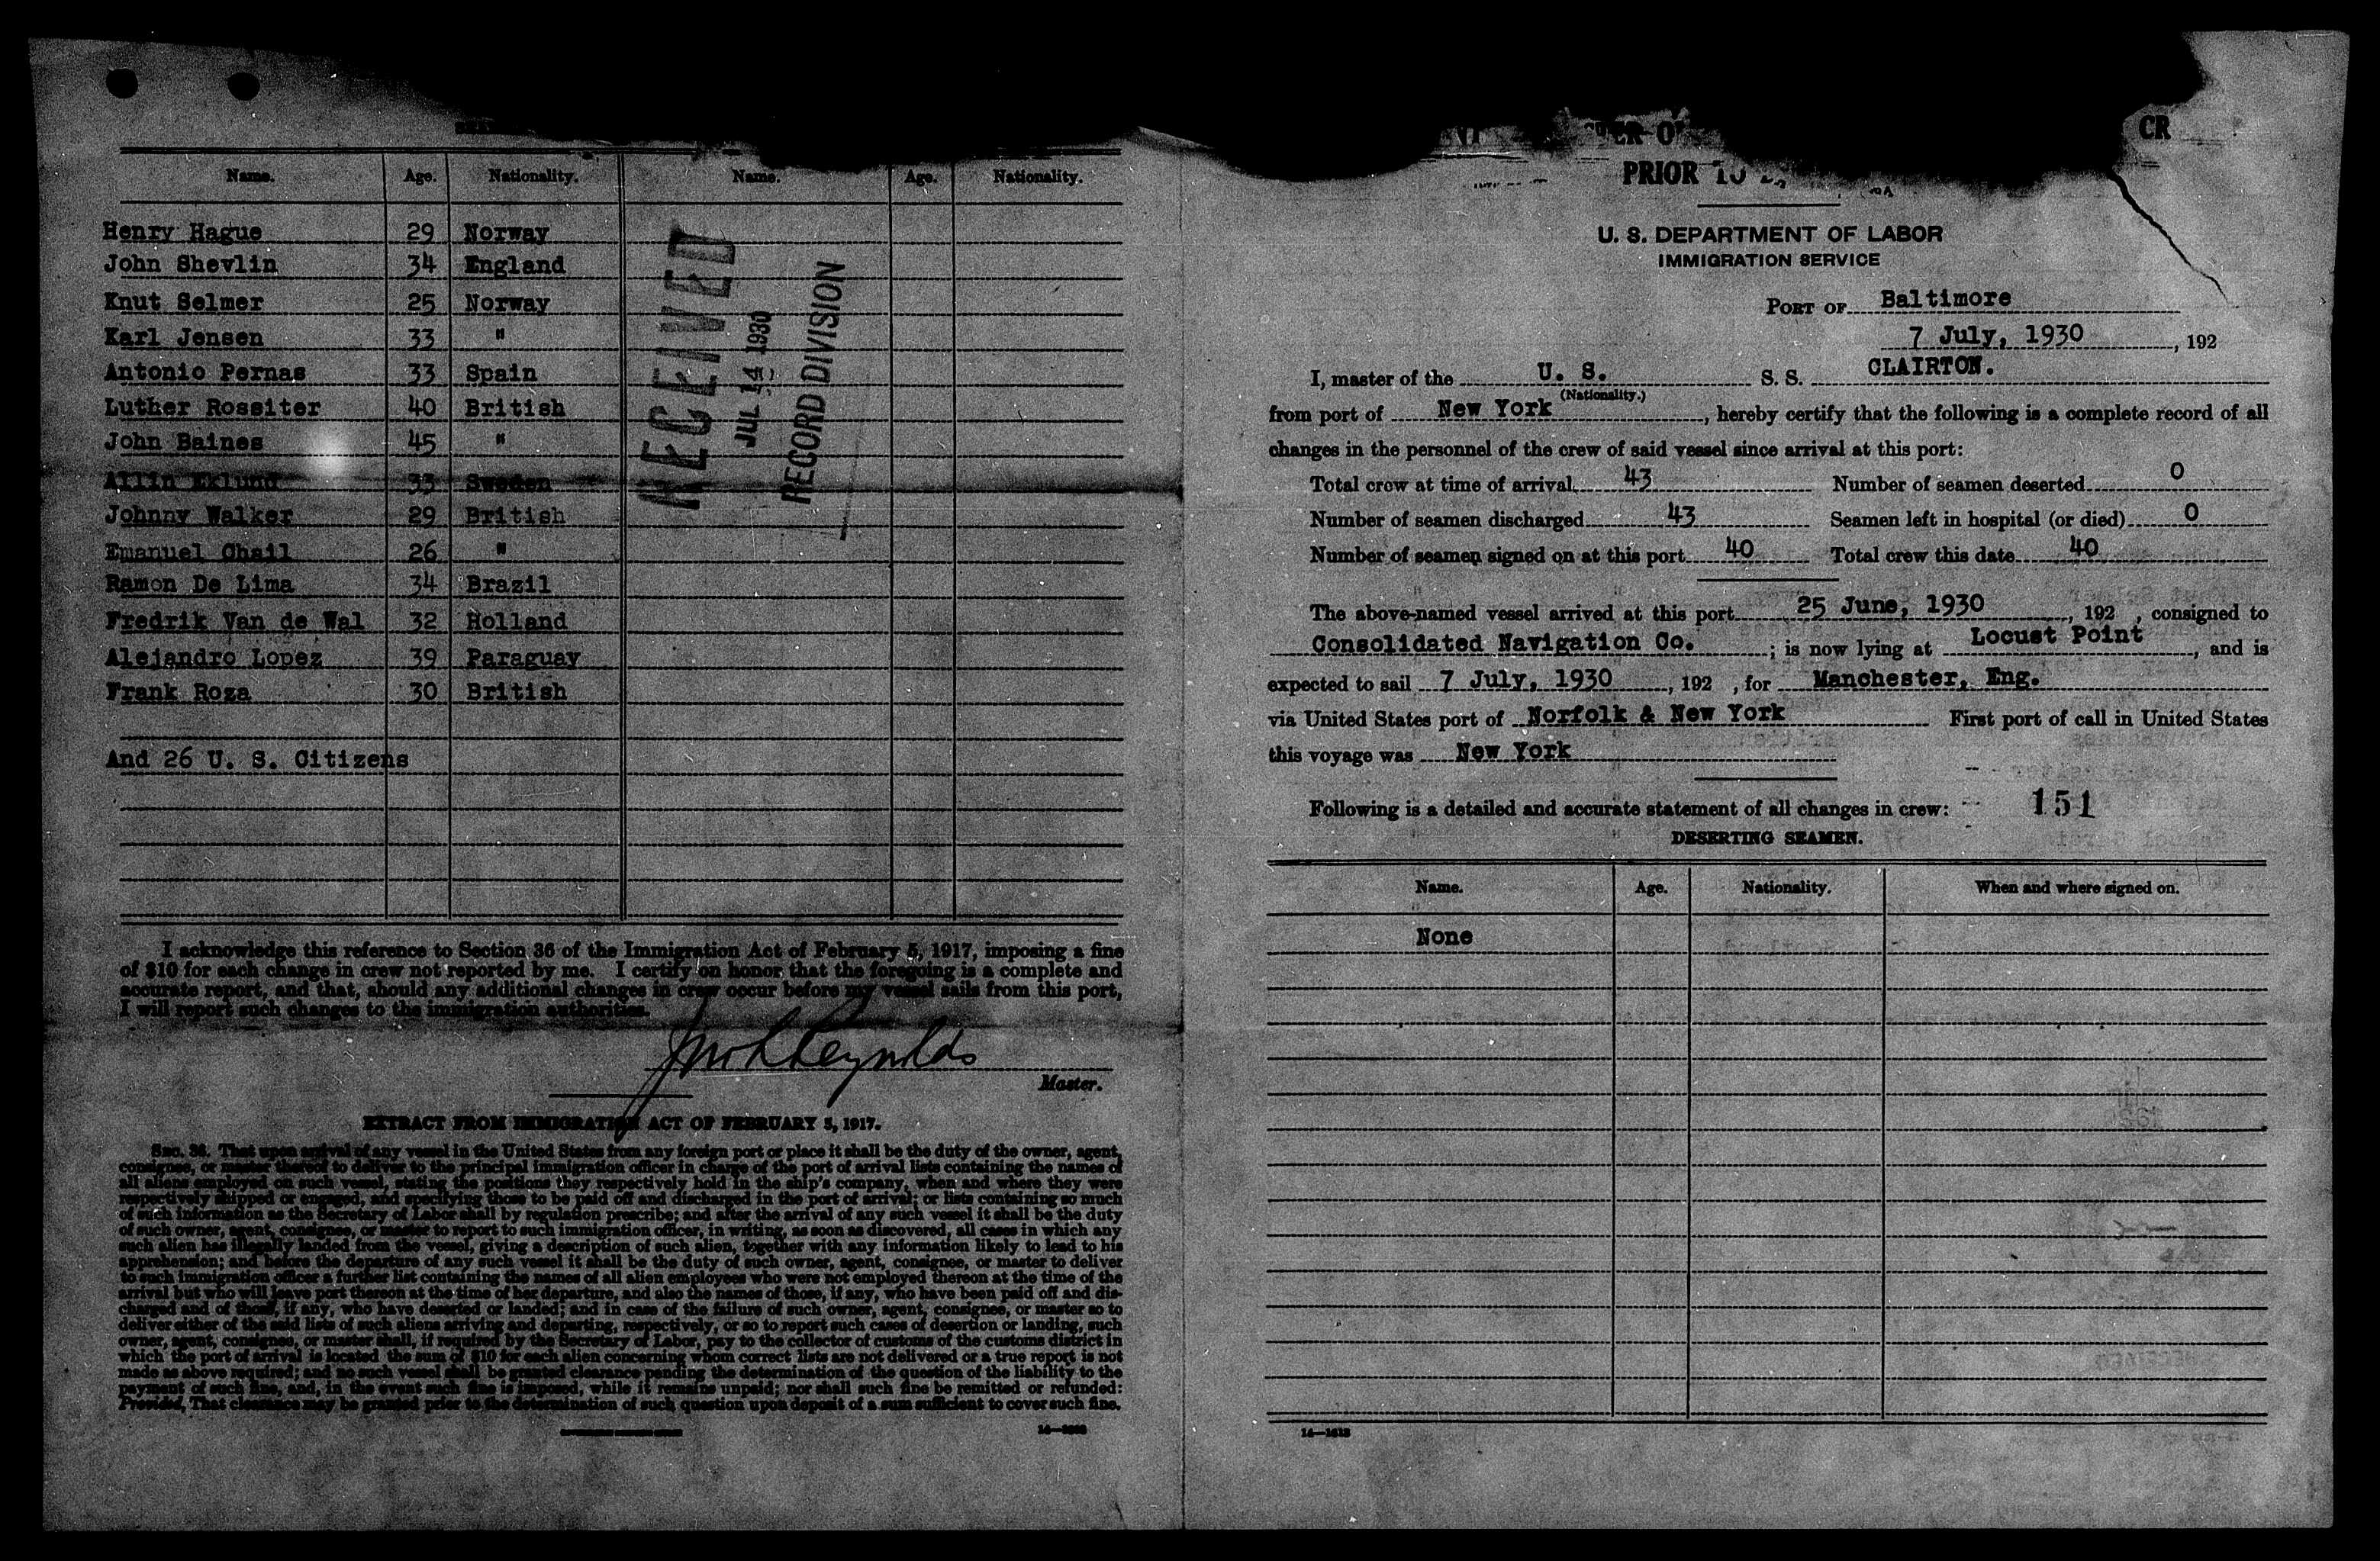 Name. Age. Nationality. Name. Age. Nationality.
Henry Hague 29 Norway
John Shevlin 34 England
Knut Selmer 25 Norway
Karl Jensen 33 "
Antonio Pernas 33 Spain
Luther Rossiter 40 British
John Baines 45 "
Allin Eklund 33 Sweden
Johnny Walker 29 British
Emanuel Chail 26 "
Ramon De Lima 34 Brazil
Fredrik Van de Wal 32 Holland
Alejandro Lopez 39 Paraguay
Frank Roza 30 British
And 26 U. S. Citizens
RECEIVED
JUL 14 1930
RECORD DIVISION
I acknowledge this reference to Section 36 of the Immigration Act of February 5, 1917, imposing a fine
of $10 for each change in crew not reported by me. I certify on honor that the foregoing is a complete and
accurate report, and that, should any additional changes in crew occur before my vessel sails from this port,
I will report such changes to the immigration authorities.
Reynolds
Master.
EXTRACT FROM IMMIGRATION ACT OF FEBRUARY 5, 1917.
SEC. 36. That upon arrival of any vessel in the United States from any foreign port or place it shall be the duty of the owner, agent,
consignee, or master thereof to deliver to the principal immigration officer in charge of the port of arrival lists containing the names of
all aliens employed on such vessel, stating the positions they respectively hold in the ship's company, when and where they were
respectively shipped or engaged, and specifying those to be paid off and discharged in the port of arrival; or lists containing so much
of such information as the Secretary of Labor shall by regulation prescribe; and after the arrival of any such vessel it shall be the duty
of such owner, agent, consignee, or master to report to such immigration officer, in writing, as soon as discovered, all cases in which any
such alien has illegally landed from the vessel, giving a description of such alien, together with any information likely to lead to his
apprehension; and before the departure of any such vessel it shall be the duty of such owner, agent, consignee, or master to deliver
to such immigration officer a further list containing the names of all alien employees who were not employed thereon at the time of the
arrival but who will leave port thereon at the time of her departure, and also the names of those, if any, who have been paid off and dis-
charged and of those, if any, who have deserted or landed; and in case of the failure of such owner, agent, consignee, or master so to
deliver either of the said lists of such aliens arriving and departing, respectively, or so to report such cases of desertion or landing, such
owner, agent, consignee, or master shall, if required by the Secretary of Labor, pay to the collector of customs of the customs district in
which the port of arrival is located the sum of $10 for each alien concerning whom correct lists are not delivered or a true report is not
made as above required; and no such vessel shall be granted clearance pending the determination of the question of the liability to the
payment of such fine, and, in the event such fine is imposed, while it remains unpaid; nor shall such fine be remitted or refunded:
Provided, That clearance may be granted prior to the determination of such question upon deposit of a sum sufficient to cover such fine.
CR
PRIOR TO
U. S. DEPARTMENT OF LABOR
IMMIGRATION SERVICE
PORT OF Baltimore
7 July, 1930, 192
I, master of the U. S. S. S. CLAIRTON.
(Nationality.)
from port of New York, hereby certify that the following is a complete record of all
changes in the personnel of the crew of said vessel since arrival at this port:
Total crew at time of arrival 43 Number of seamen deserted 0
Number of seamen discharged 43 Seamen left in hospital (or died) 0
Number of seamen signed on at this port 40 Total crew this date 40
The above-named vessel arrived at this port 25 June, 1930, 192 , consigned to
Consolidated Navigation Co. ; is now lying at Locust Point, and is
expected to sail 7 July, 1930, 192 , for Manchester, Eng.
via United States port of Norfolk & New York First port of call in United States
this voyage was New York
Following is a detailed and accurate statement of all changes in crew: 151
DESERTING SEAMEN.
Name. Age. Nationality. When and where signed on.
None
14—1613